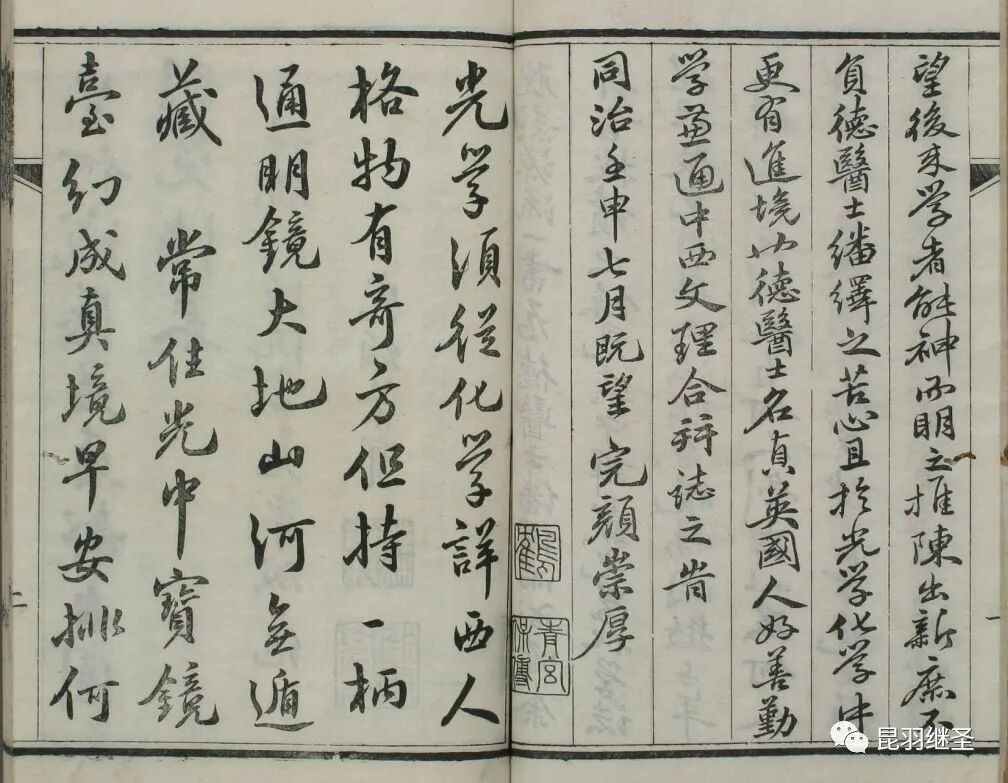 望後来学者能神而明之推陳出新庶不
負德醫士繙繹之苦心且於光学化学中
更有進境也德醫士名真英國人好善勤
学兼通中西文理合并誌之旹
同治壬申七月既望完顏崇厚
青宮保傅
光学須從化学詳西人
格物有奇方但持一柄
通明鏡大地山河無遁
藏 常住光中寶鏡
臺幻成真境早安排何
昆羽继圣